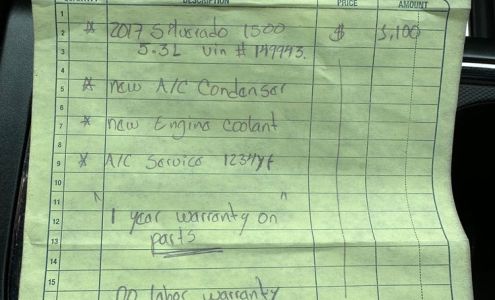 QUANTITY DESCRIPTION PRICE AMOUNT
1
2 * 2017 Silverado 1500 $ 5,100
3 5.3L vin # 149943.
4
5 * new A/C Condenser
6
7 * new Engine coolant
8
9 * A/C Service 1234yf
10
11 " "
12 1 year warranty on
13 parts
14
15 no labor warranty